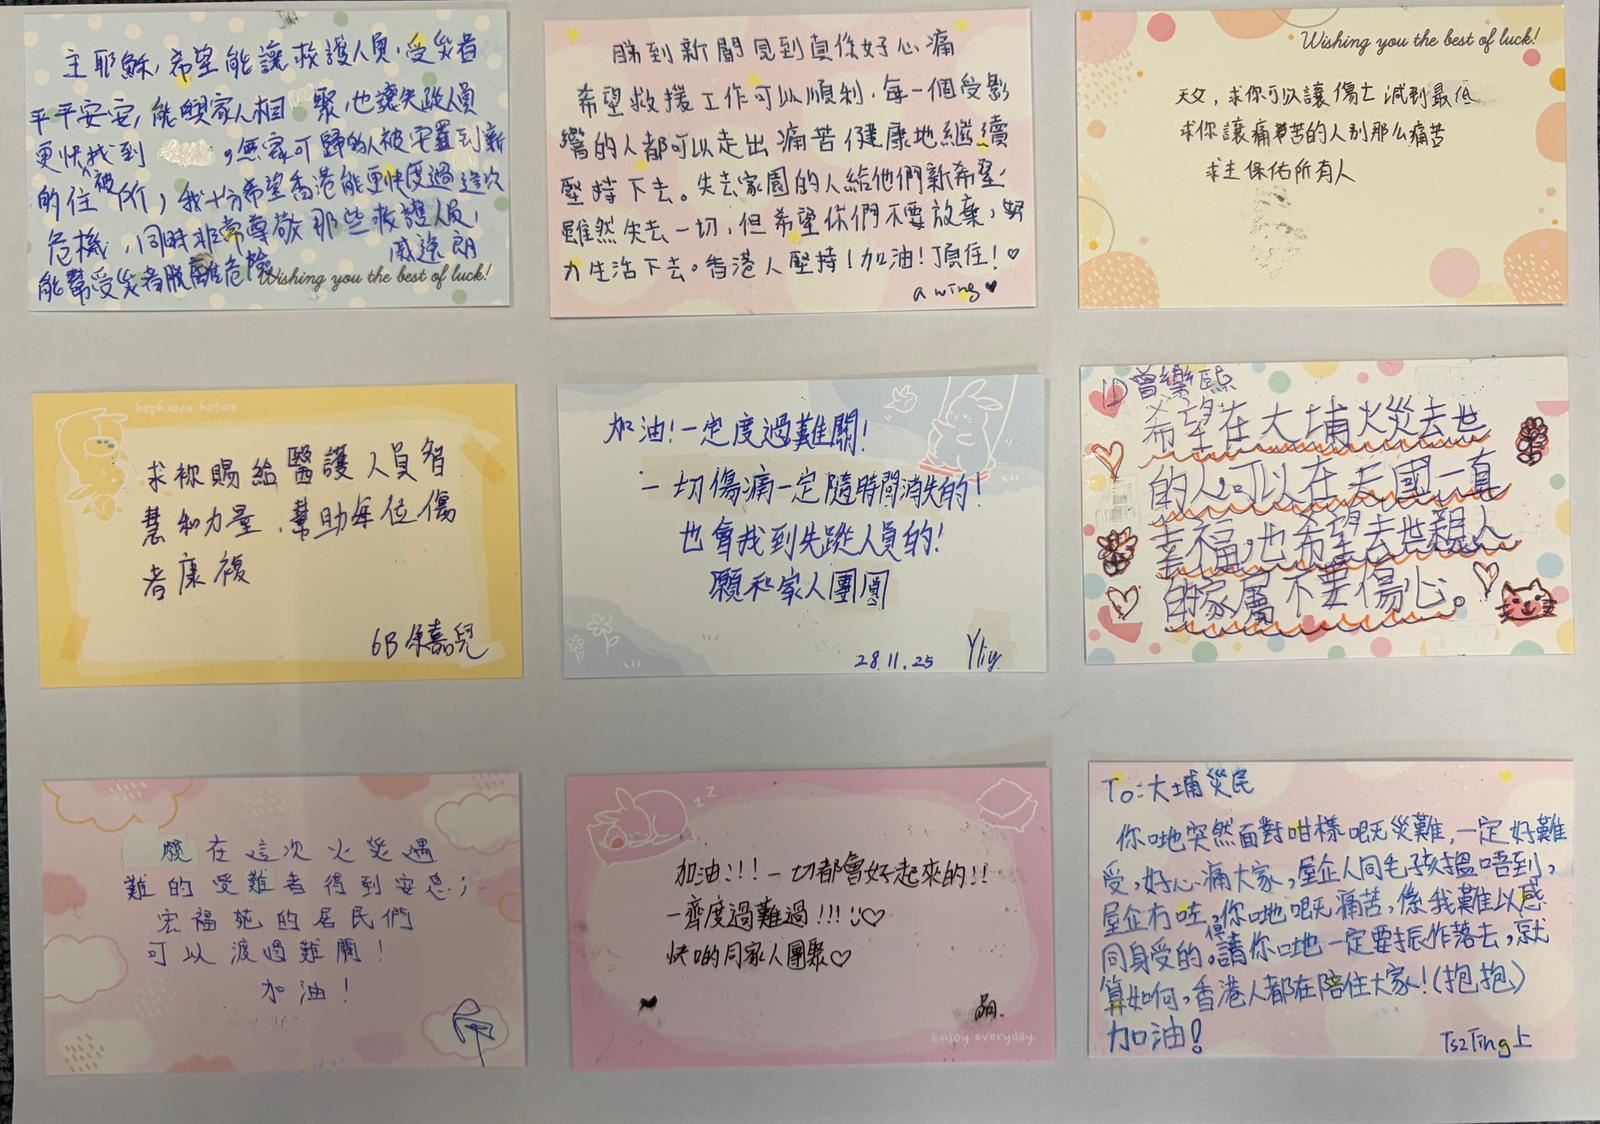 主耶穌，希望能讓救護人員，受災者
平平安安，能與家人相聚，也讓失蹤人員
更快被找到，無家可歸的人被安置到新
的住所，我十分希望香港能更快度過這次
危機，同時非常尊敬那些救護人員，
能幫受災者脫離危險
Wishing you the best of luck!
睇到新聞見到真係好心痛
希望救援工作可以順利，每一個受影
響的人都可以走出痛苦健康地繼續
堅持下去。失去家園的人給他們新希望，
雖然失去一切，但希望你們不要放棄，努
力生活下去。香港人堅持！加油！頂住！♡
a wing ♥
Wishing you the best of luck!
天父，求你可以讓傷亡減到最低
求你讓痛苦的人别那么痛苦
求主保佑所有人
Enjoy everyday
求祢賜給醫護人員智
慧和力量，幫助每位傷
者康複
6B 徐嘉兒
加油！一定度過難關！
一切傷痛一定隨時間消失的！
也會找到失蹤人員的！
願和家人團圓
28.11.25
1D曾樂熙
希望在大埔火災去世
的人可以在天國一直
幸福，也希望去世親人
的家屬不要傷心。
願在這次火災遇
難的受難者得到安息；
宏福苑的居民們
可以渡過難關！
加油！
加油！！！一切都會好起來的！！
一齊度過難過！！！♡
快啲同家人團聚♡
Enjoy everyday.
To：大埔災民
你哋突然面對咁樣嘅災難，一定好難
受，好心痛大家，屋企人同毛孩搵唔到，
屋企冇咗，你哋嘅痛苦，係我難以感
同身受的。但請你哋一定要振作落去，就
算如何，香港人都在陪住大家！（抱抱）
加油！
Tsz Ting上